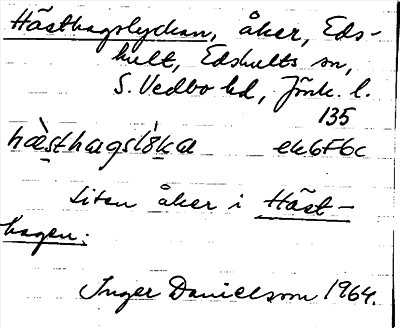 Hästhagslyckan, åker, Eds-
hult, Edshults sn,
S. Vedbo hd, Jönk. l.
135
hæ̀sthagslỏ̀ka ek6F6c
Liten åker i Häst-
hagen:
Inger Danielsson 1964.